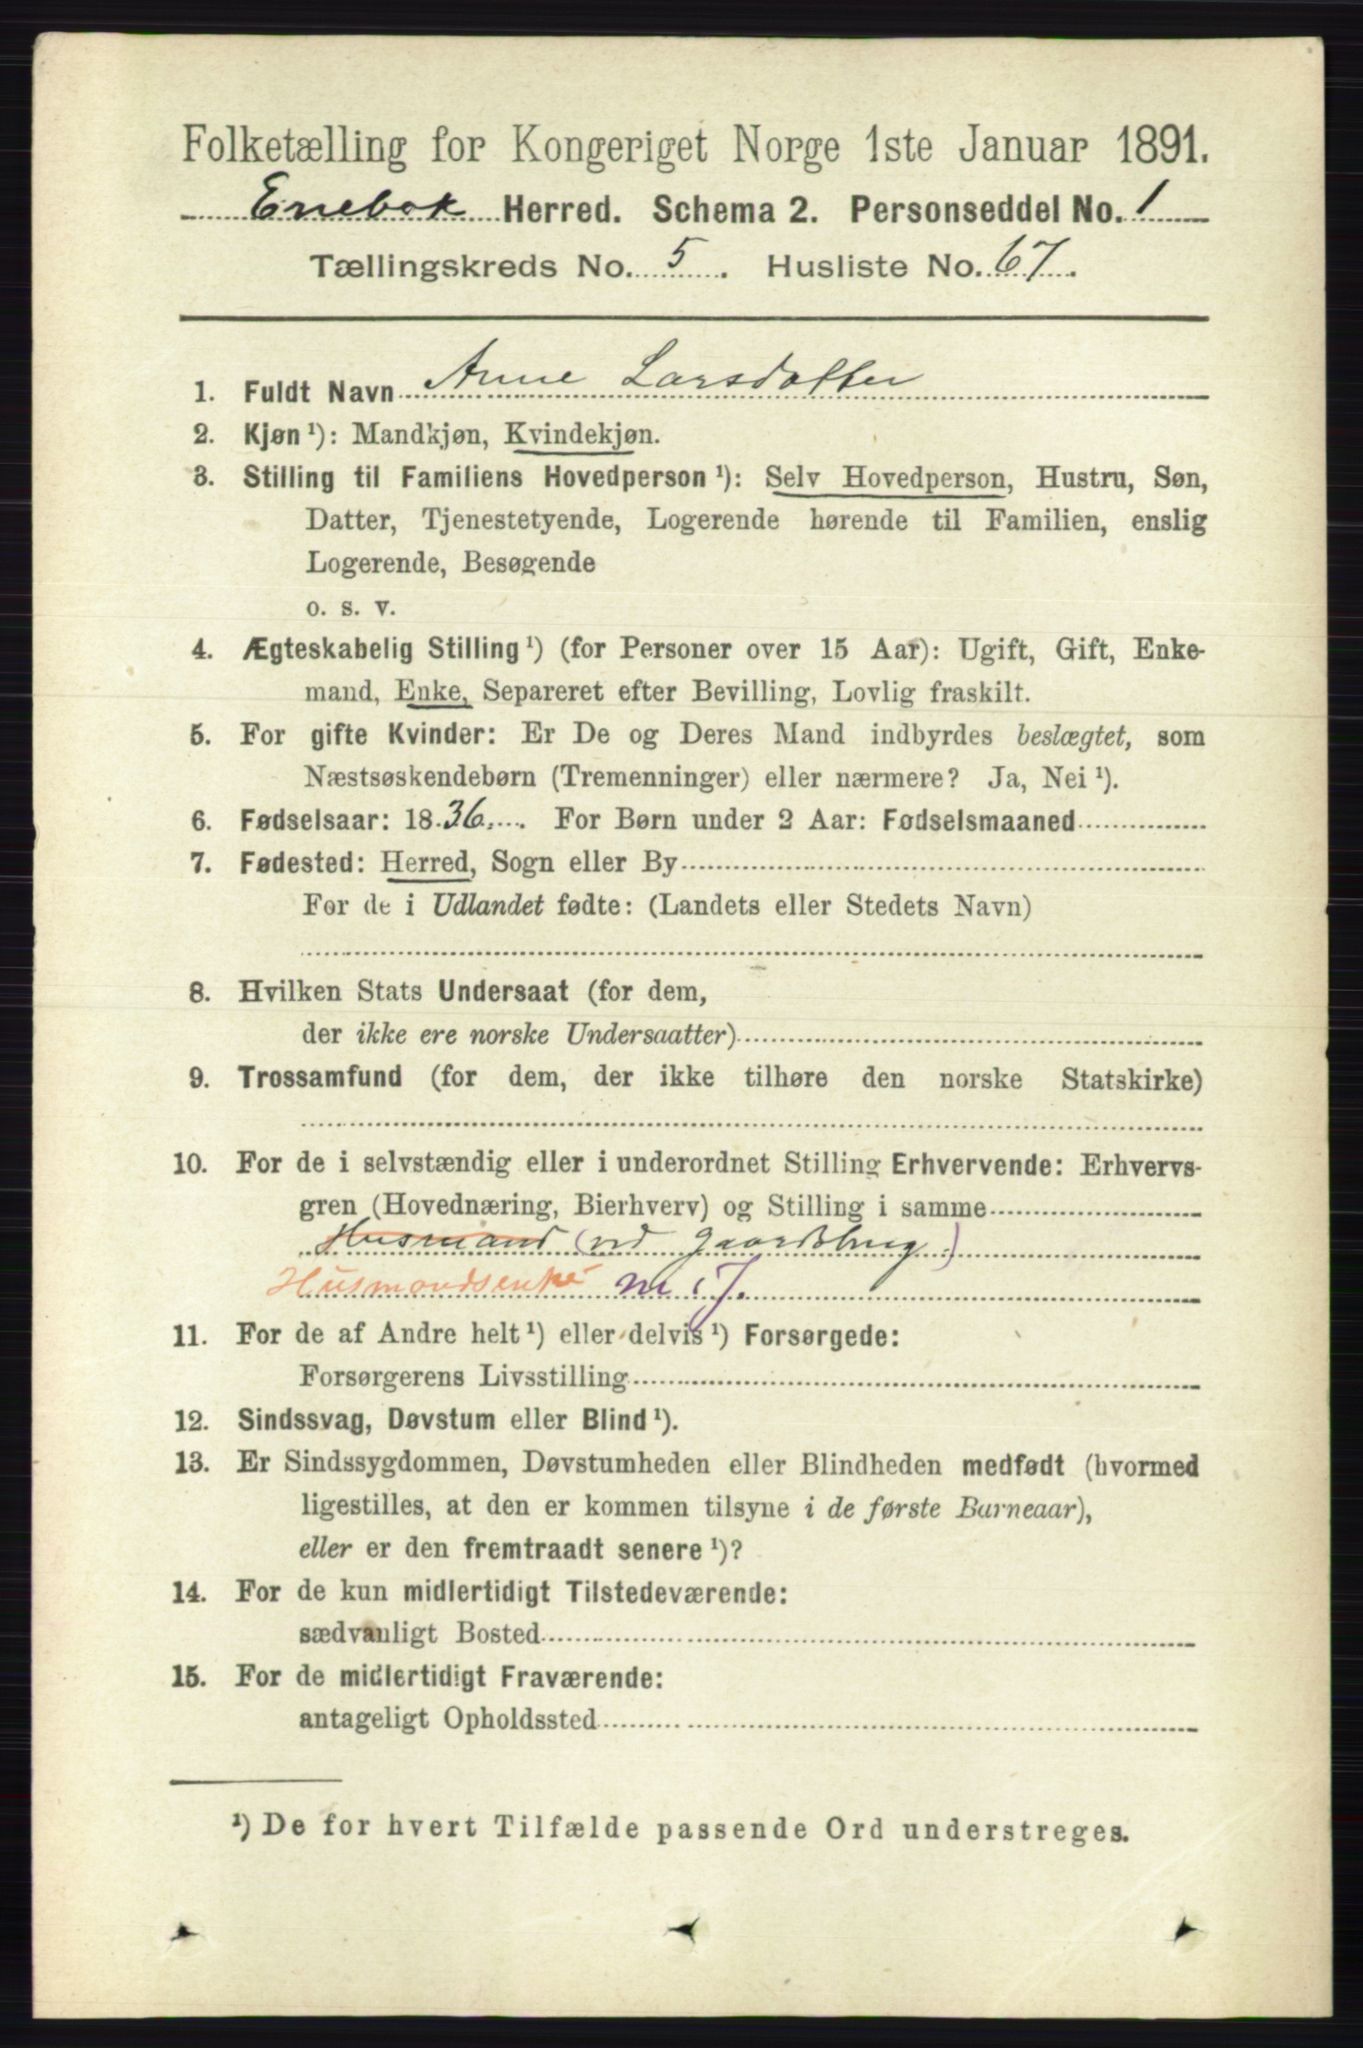 Folketælling for Kongeriget Norge 1ste Januar 1891.
Enebak Herred. Schema 2. Personseddel No. 1
Tællingskreds No. 5. Husliste No. 67.
1. Fuldt Navn Anne Larsdatter
2. Kjøn ¹): Mandkjøn, Kvindekjøn.
3. Stilling til Familiens Hovedperson ¹): Selv Hovedperson, Hustru, Søn,
Datter, Tjenestetyende, Logerende hørende til Familien, enslig
Logerende, Besøgende
o. s. v.
4. Ægteskabelig Stilling ¹) (for Personer over 15 Aar): Ugift, Gift, Enke-
mand, Enke, Separeret efter Bevilling, Lovlig fraskilt.
5. For gifte Kvinder: Er De og Deres Mand indbyrdes beslægtet, som
Næstsøskendebørn (Tremenninger) eller nærmere? Ja, Nei ¹).
6. Fødselsaar: 1836. For Børn under 2 Aar: Fødselsmaaned
7. Fødested: Herred, Sogn eller By
For de i Udlandet fødte: (Landets eller Stedets Navn)
8. Hvilken Stats Undersaat (for dem,
der ikke ere norske Undersaatter)
9. Trossamfund (for dem, der ikke tilhøre den norske Statskirke)
10. For de i selvstændig eller i underordnet Stilling Erhvervende: Erhvervs-
gren (Hovednæring, Bierhverv) og Stilling i samme
Husmand (vd Gaardbrug)
Husmandsenke m. J.
11. For de af Andre helt ¹) eller delvis ¹) Forsørgede:
Forsørgerens Livsstilling
12. Sindssvag, Døvstum eller Blind ¹).
13. Er Sindssygdommen, Døvstumheden eller Blindheden medfødt (hvormed
ligestilles, at den er kommen tilsyne i de første Barneaar),
eller er den fremtraadt senere ¹)?
14. For de kun midlertidigt Tilstedeværende:
sædvanligt Bosted
15. For de midlertidigt Fraværende:
antageligt Opholdssted
¹) De for hvert Tilfælde passende Ord understreges.